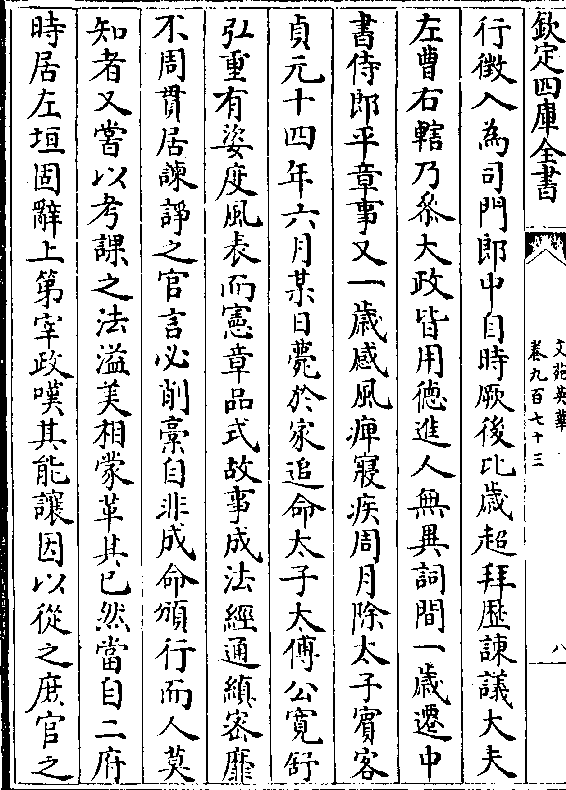 欽定四庫全書
文苑英華
卷九百七十三
八
行徵入為司門郎中自時厥後比歲超拜歷諫議大夫
左曹右轄乃叅大政皆用德進人無異詞間一歲遷中
書侍郎平章事又一歲感風痺寢疾周月除太子賓客
貞元十四年六月某日薨於家追命太子太傅公寛舒
弘重有姿度風表而憲章品式故事成法經通縝密靡
不周貫居諫諍之官言必削藁自非成命頒行而人莫
知者又嘗以考課之法溢美相蒙革其已然當自二府
時居左垣固辭上第宰政嘆其能讓因以從之庶官之